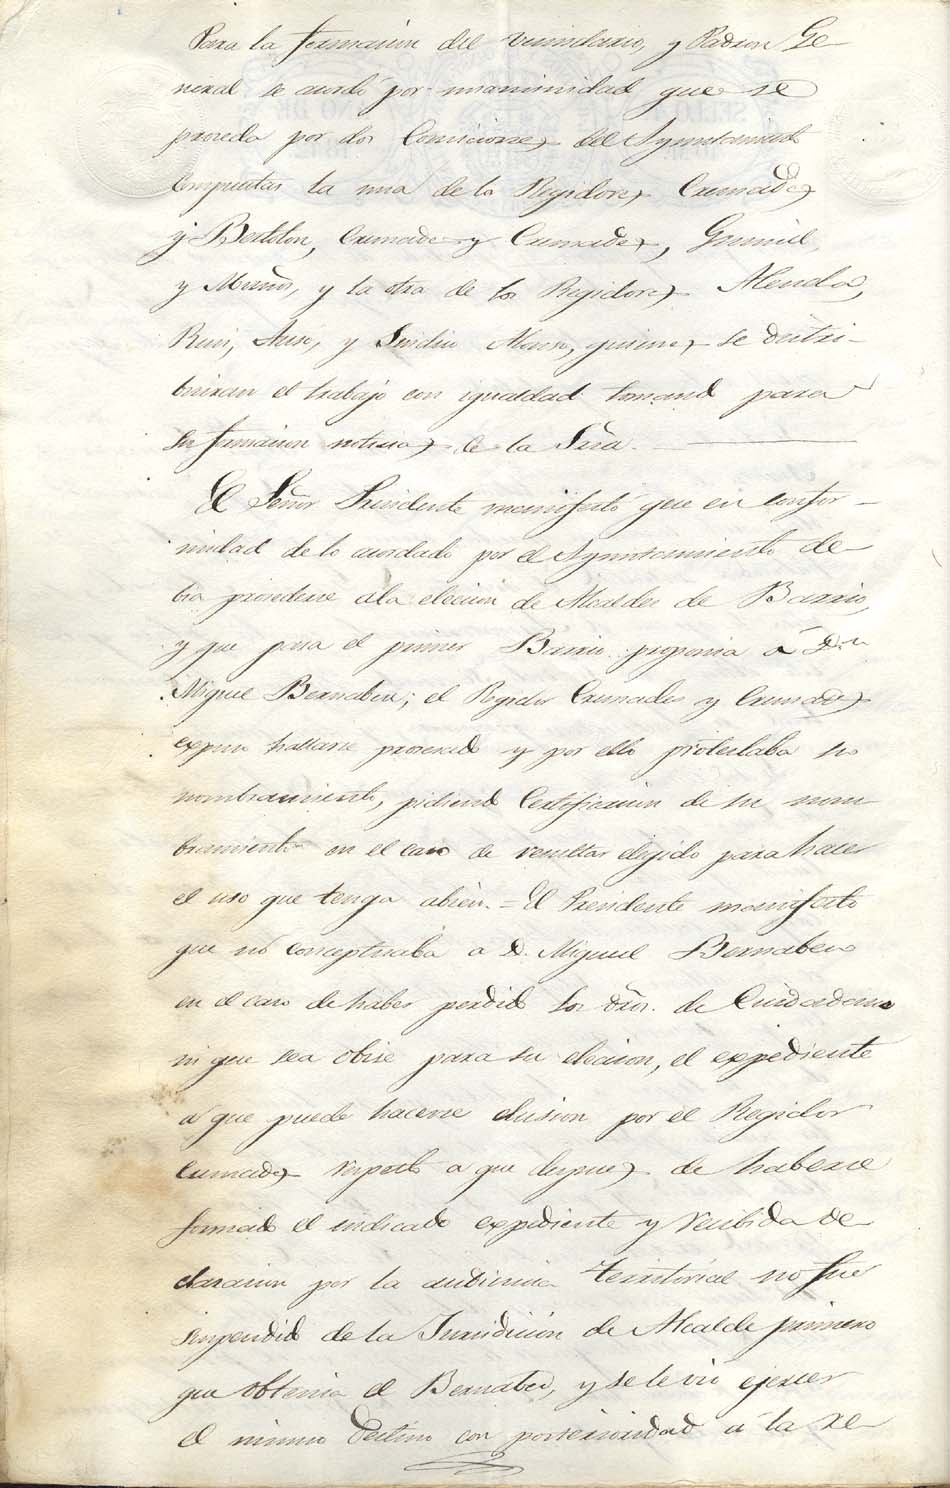 Para la formacion del vecindario, y Padron Ge-
neral se acordó por unanimidad que se
proceda por dos Comisiones del Ayuntamiento
Compuestas la una de los Regidores Cremades
y Bertolon, Cremades y Cremades,
y Muñoz, y la otra de los Regidores
Ruiz, y Sindico quienes se distri-
buiran el trabajo con igualdad tomand para
su formacion noticias de la
El Señor Presidente manifestó que en confor-
midad de lo acordado por el Ayuntamiento de-
bia procederse ala eleccion de Alcaldes de Barrio,
y que para el primer Barrio proponia á Dn
Miguel Bernabeu; el Regidor Cremades y Cremades
expuso hallarse procesado y por ello protestaba su
nombramiento, pidiend Certificacion de su nom
bramiento en el caso de resultar elegido para hacer
el uso que tenga abien. = El Presidente manifesto
que no conceptuaba a D. Miguel Bernabeu
en el caso de haber perdido los dros. de Ciudadano
ni que sea obice para su eleccion, el expediente
a que puede hacerse alusion por el Regidor
Cremades respecto a que despues de haberse
formado el indicado expediente y recibida de
claracion por la audiencia territorial no fue
suspendido de la Jurisdicion de Alcalde primero
que obtenia el Bernabeu, y se le vio ejercer
el mismo destino con posterioridad á la re